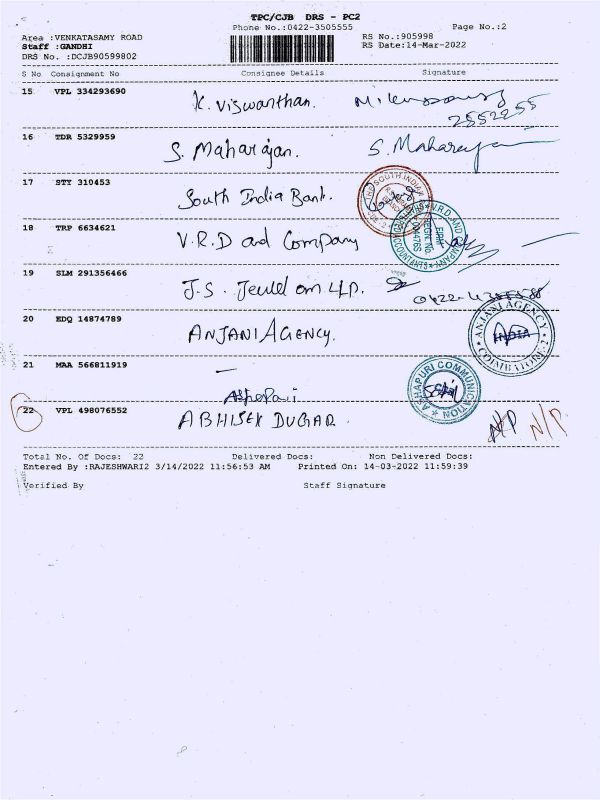 TPC/CJB DRS - PC2
Phone No.:0422-3505555 Page No.:2
Area :VENKATASAMY ROAD RS No.:905998
Staff :GANDHI RS Date:14-Mar-2022
DRS No. :DCJB90599802
S No Consignment No Consignee Details Signature
15 VPL 334293690 K. Viswanthan.
2552255
16 TDR 5329959 S. Maharajan. S. Maharajan
17 STY 310453 South India Bank. THE SOUTH INDIAN
18 TRP 6634621 V.R.D and Company V.R.D AND COMPANY ACCOUNTANTS FIRM REGN. No.
19 SLM 291356466 J.S. Jewel om LLP.
20 EDQ 14874789 ANJANI AGENCY. ANJANI AGENCY INDIA COIMBATORE-2
21 MAA 566811919 — ASHAPURI COMMUNICATION
22 VPL 498076552 ABHISEK DUGAR N/P N/P
Total No. Of Docs: 22 Delivered Docs: Non Delivered Docs:
Entered By :RAJESHWARI2 3/14/2022 11:56:53 AM Printed On: 14-03-2022 11:59:39
Verified By Staff Signature